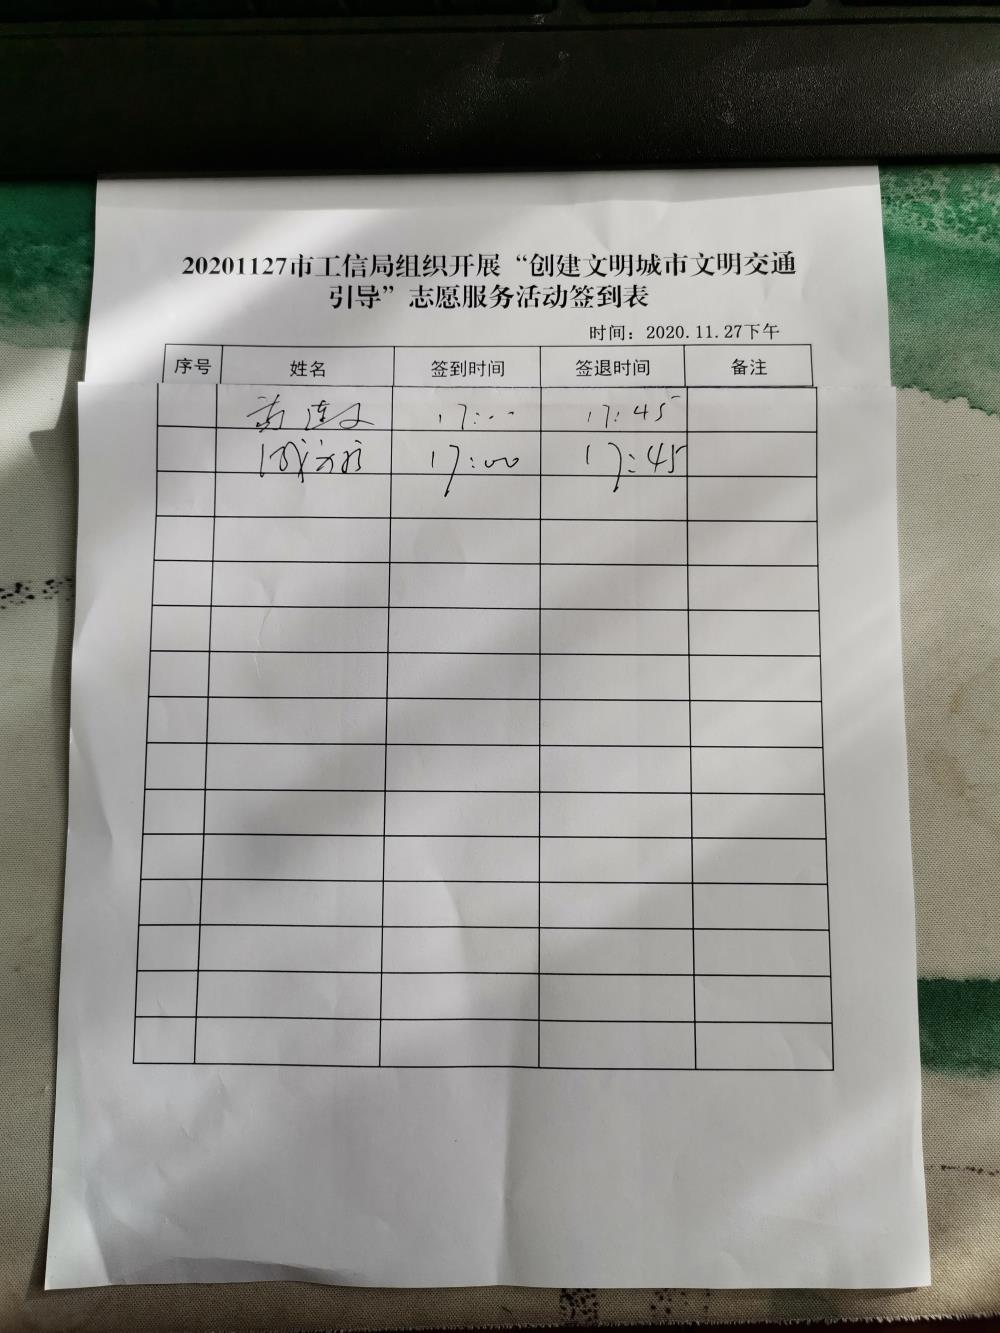 20201127市工信局组织开展“创建文明城市文明交通
引导”志愿服务活动签到表
时间：2020.11.27下午
序号 姓名 签到时间 签退时间 备注
17:00 17:45
17:00 17:45